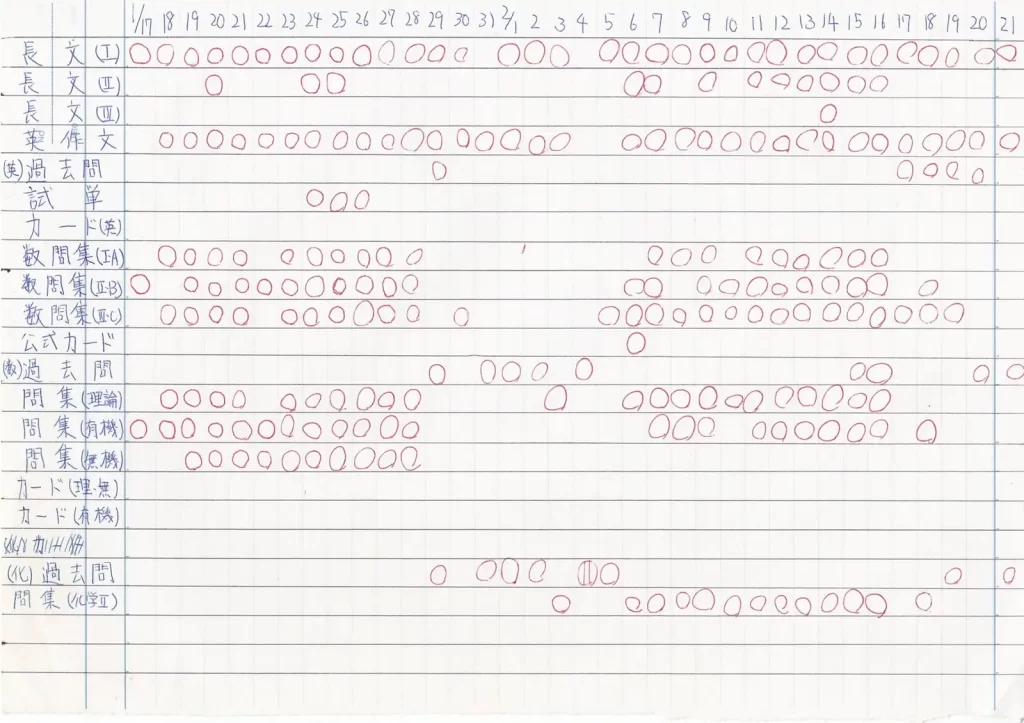 1/17 18 19 20 21 22 23 24 25 26 27 28 29 30 31 2/1 2 3 4 5 6 7 8 9 10 11 12 13 14 15 16 17 18 19 20 21
長文(I)
長文(II)
長文(III)
英作文
(英)過去問
試単
カード(英)
数問集(I・A)
数問集(II・B)
数問集(III・C)
公式カード
(数)過去問
問集(理論)
問集(有機)
問集(無機)
カード(理・無)
カード(有機)
(化)過去問
問集(化学II)